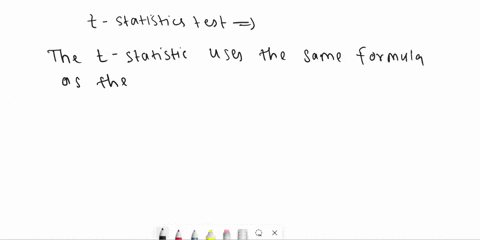 t - statistics test ⇒
The t - statistic uses the same formula
as the